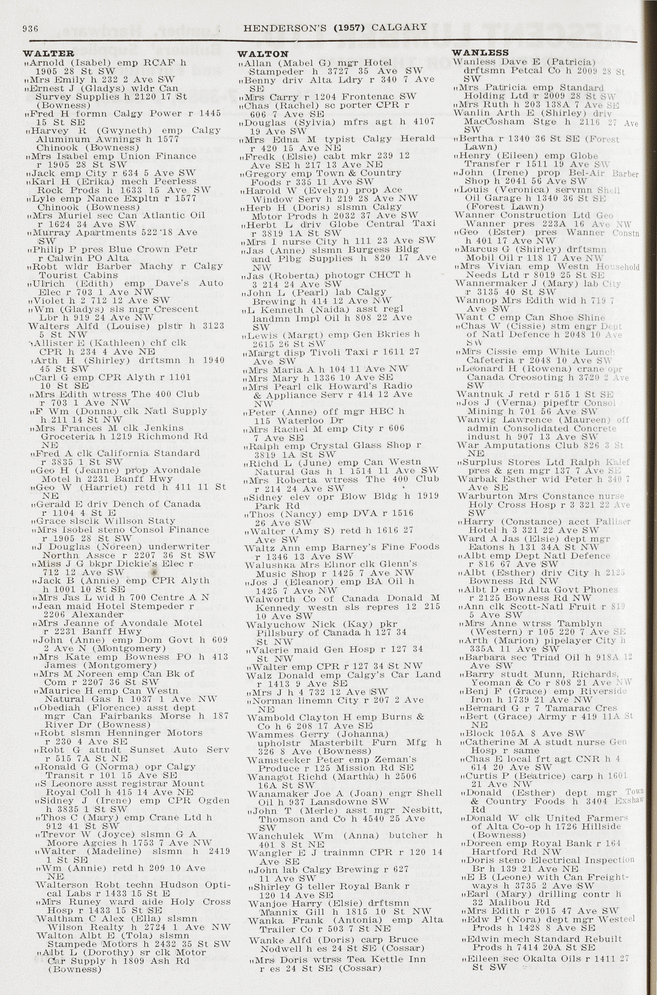 936
HENDERSON'S (1957) CALGARY
WALTER
„Arnold (Isabel) emp RCAF h
1905 28 St SW
„Mrs Emily h 232 2 Ave SW
„Ernest J (Gladys) wldr Can
Survey Supplies h 2120 17 St
(Bowness)
„Fred H formn Calgy Power r 1445
15 St SE
„Harvey R (Gwyneth) emp Calgy
Aluminum Awnings h 1577
Chinook (Bowness)
„Mrs Isabel emp Union Finance
r 1905 28 St SW
„Jack emp City r 634 5 Ave SW
„Karl H (Erika) mech Peerless
Rock Prods h 1633 15 Ave SW
„Lyle emp Nance Expltn r 1577
Chinook (Bowness)
„Mrs Muriel sec Can Atlantic Oil
r 1624 34 Ave SW
„Murray Apartments 522 18 Ave
SW
„Philip P pres Blue Crown Petr
r Calwin PO Alta
„Robt wldr Barber Machy r Calgy
Tourist Cabins
„Ulrich (Edith) emp Dave's Auto
Elec r 703 1 Ave NW
„Violet h 2 712 12 Ave SW
„Wm (Gladys) slsmn mgr Crescent
Lbr h 919 24 Ave NW
Walters Alfd (Louise) plstr h 3123
5 St NW
„Allister E (Kathleen) chf clk
CPR h 234 4 Ave NE
„Arth H (Shirley) drftsmn h 1940
45 St SW
„Carl G emp CPR Alyth r 1101
10 St SE
„Mrs Edith wtress The 400 Club
r 703 1 Ave NW
„F Wm (Donna) clk Natl Supply
h 211 14 St NW
„Mrs Frances M clk Jenkins
Groceteria h 1219 Richmond Rd
NE
„Fred A clk California Standard
r 3835 1 St SW
„Geo H (Jeanne) prop Avondale
Motel h 2231 Banff Hwy
„Geo W (Harriet) retd h 411 11 St
NE
„Gerald E driv Dench of Canada
r 1104 4 St E
„Grace slsclk Willson Staty
„Mrs Isobel steno Consol Finance
r 1905 28 St SW
„J Douglas (Noreen) underwriter
Northn Assce r 2207 36 St SW
„Miss J G bkpr Dickie's Elec r
712 12 Ave SW
„Jack B (Annie) emp CPR Alyth
h 1001 10 St SE
„Mrs Jas L wid h 700 Centre A N
„Jean maid Hotel Stempeder r
2206 Alexander
„Mrs Jeanne of Avondale Motel
r 2231 Banff Hwy
„John (Anne) emp Dom Govt h 609
2 Ave N (Montgomery)
„Mrs Kate emp Bowness PO h 413
James (Montgomery)
„Mrs M Noreen emp Can Bk of
Com r 2207 36 St SW
„Maurice H emp Can Westn
Natural Gas h 1037 1 Ave NW
„Obediah (Florence) asst dept
mgr Can Fairbanks Morse h 187
River Dr (Bowness)
„Robt slsmn Henninger Motors
r 230 4 Ave SE
„Robt G attndt Sunset Auto Serv
r 515 7A St NE
„Ronald G (Norma) opr Calgy
Transit r 101 15 Ave SE
„S Leonore asst registrar Mount
Royal Coll h 415 14 Ave NE
„Sidney J (Irene) emp CPR Ogden
h 3835 1 St SW
„Thos C (Mary) emp Crane Ltd h
912 41 St SW
„Trevor W (Joyce) slsmn G A
Moore Agcies h 1753 7 Ave NW
„Walter (Madeline) slsmn h 2419
1 St SE
„Wm (Annie) retd h 209 10 Ave
NE
Walterson Robt techn Hudson Opti-
cal Labs r 1433 15 St E
„Mrs Runey ward aide Holy Cross
Hosp r 1433 15 St SE
Waltham C Alex (Ella) slsmn
Wilson Realty h 2724 1 Ave NW
Walton Albt E (Tola) slsmn
Stampede Motors h 2432 35 St SW
„Albt L (Dorothy) sr clk Motor
Car Supply h 1809 Ash Rd
(Bowness)
WALTON
„Allan (Mabel G) mgr Hotel
Stampeder h 3727 35 Ave SW
„Benny driv Alta Ldry r 340 7 Ave
SE
„Mrs Carry r 1204 Frontenac SW
„Chas (Rachel) sc porter CPR r
606 7 Ave SE
„Douglas (Sylvia) mfrs agt h 4107
19 Ave SW
„Mrs Edna M typist Calgy Herald
r 420 15 Ave NE
„Fredk (Elsie) cabt mkr 239 12
Ave SE h 217 13 Ave NE
„Gregory emp Town & Country
Foods r 335 11 Ave SW
„Harold W (Evelyn) prop Ace
Window Serv h 219 28 Ave NW
„Herb H (Doris) slsmn Calgy
Motor Prods h 2032 37 Ave SW
„Herbt L driv Globe Central Taxi
r 3819 1A St SW
„Mrs I nurse City h 111 23 Ave SW
„Jas (Anne) slsmn Burgess Bldg
and Plbg Supplies h 820 17 Ave
NW
„Jas (Roberta) photogr CHCT h
3 214 24 Ave SW
„John L (Pearl) lab Calgy
Brewing h 414 12 Ave NW
„L Kenneth (Naida) asst regl
landmn Impl Oil h 808 22 Ave
SW
„Lewis (Margt) emp Gen Bkries h
2615 26 St SW
„Margt disp Tivoli Taxi r 1611 27
Ave SW
„Mrs Maria A h 104 11 Ave NW
„Mrs Mary h 1336 10 Ave SE
„Mrs Pearl clk Howard's Radio
& Appliance Serv r 414 12 Ave
NW
„Peter (Anne) off mgr HBC h
115 Waterloo Dr
„Mrs Rachel M emp City r 606
7 Ave SE
„Ralph emp Crystal Glass Shop r
3819 1A St SW
„Richd L (June) emp Can Westn
Natural Gas h 1 1514 11 Ave SW
„Mrs Roberta wtress The 400 Club
r 214 24 Ave SW
„Sidney elev opr Blow Bldg h 1919
Park Rd
„Thos (Nancy) emp DVA r 1516
26 Ave SW
„Walter (Amy S) retd h 1616 27
Ave SW
Waltz Ann emp Barney's Fine Foods
r 1346 13 Ave SW
Walushka Mrs Elinor clk Glenn's
Music Shop r 1425 7 Ave NW
„Jos J (Eleanor) emp BA Oil h
1425 7 Ave NW
Walworth Co of Canada Donald M
Kennedy westn sls repres 12 215
10 Ave SW
Walyuchow Nick (Kay) pkr
Pillsbury of Canada h 127 34
St NW
„Valerie maid Gen Hosp r 127 34
St NW
„Walter emp CPR r 127 34 St NW
Walz Donald emp Calgy's Car Land
r 1413 9 Ave SE
„Mrs J h 4 732 12 Ave SW
„Norman linemn City r 207 2 Ave
NE
Wambold Clayton H emp Burns &
Co h 6 208 17 Ave SW
Wammes Gerry (Johanna)
upholstr Masterbilt Furn Mfg h
326 8 Ave (Bowness)
Wamsteeker Peter emp Zeman's
Produce r 125 Mission Rd SE
Wanagot Richd (Martha) h 2506
16A St SW
Wanamaker Joe A (Joan) engr Shell
Oil h 937 Lansdowne SW
„John T (Merle) asst mgr Nesbitt,
Thomson and Co h 4540 25 Ave
SW
Wanchulek Wm (Anna) butcher h
401 8 St NE
Wangler E J trainmn CPR r 120 14
Ave SE
„John lab Calgy Brewing r 627
11 Ave SW
„Shirley G teller Royal Bank r
120 14 Ave SE
Wanjoe Harry (Elsie) drftsmn
Mannix Gill h 1815 10 St NW
Wanka Frank (Antonia) emp Alta
Trailer Co r 503 7 St NE
Wanke Alfd (Doris) carp Bruce
Nodwell h es 24 St SE (Cossar)
„Mrs Doris wtrss Tea Kettle Inn
r es 24 St SE (Cossar)
WANLESS
Wanless Dave E (Patricia)
drftsmn Petcal Co h 2009 28 St
SW
„Mrs Patricia emp Standard
Holding Ltd r 2009 28 St SW
„Mrs Ruth h 203 138A 7 Ave SE
Wanlin Arth E (Shirley) driv
MacCosham Stge h 2116 27 Ave
SW
„Bertha r 1340 36 St SE (Forest
Lawn)
„Henry (Eileen) emp Globe
Transfer r 1511 19 Ave SW
„John (Irene) prop Bel-Air Barber
Shop h 2041 56 Ave SW
„Louis (Veronica) servmn Shell
Oil Garage h 1340 36 St SE
(Forest Lawn)
Wanner Construction Ltd Geo
Wanner pres 223A 16 Ave NW
„Geo (Ester) pres Wanner Constn
h 401 17 Ave NW
„Marcus G (Shirley) drftsmn
Mobil Oil r 118 17 Ave NW
„Mrs Vivian emp Westn Household
Needs Ltd r 8019 25 St SE
Wannermaker J (Mary) lab City
r 3135 40 St SW
Wannop Mrs Edith wid h 719 7
Ave SW
Want C emp Can Shoe Shine
„Chas W (Cissie) stm engr Dept
of Natl Defence h 2048 10 Ave
SW
„Mrs Cissie emp White Lunch
Cafeteria r 2048 10 Ave SW
„Leonard H (Rowena) crane opr
Canada Creosoting h 3720 2 Ave
SW
Wantnuk J retd r 515 1 St SE
„Jos J (Verna) pipeftr Consol
Mining h 701 56 Ave SW
Wanvig Lawrence (Maureen) off
admin Consolidated Concrete
indust h 907 13 Ave SW
War Amputations Club 826 3 St
NE
„Surplus Stores Ltd Ralph Kalef
pres & gen mgr 137 7 Ave SE
Warbak Esther wid Peter h 340 7
Ave SE
Warburton Mrs Constance nurse
Holy Cross Hosp r 3 321 22 Ave
SW
„Harry (Constance) acct Palliser
Hotel h 3 321 22 Ave SW
Ward A Jas (Elsie) dept mgr
Eatons h 131 34A St NW
„Albt emp Dept Natl Defence
r 816 67 Ave SW
„Albt (Esther) driv City h 2125
Bowness Rd NW
„Albt D emp Alta Govt Phones
r 2125 Bowness Rd NW
„Ann clk Scott-Natl Fruit r 819
5 Ave SW
„Mrs Anne wtrss Tamblyn
(Western) r 105 220 7 Ave SE
„Arth (Marion) pipelayer City h
335A 11 Ave SW
„Barbara sec Triad Oil h 918A 12
Ave SW
„Barry studt Munn, Richards,
Yeoman & Co r 808 21 Ave NW
„Benj F (Grace) emp Riverside
Iron h 1739 21 Ave NW
„Bernard G r 7 Tamarac Cres
„Bert (Grace) Army r 419 11A St
NE
„Block 105A 8 Ave SW
„Catherine M A studt nurse Gen
Hosp r same
„Chas E local frt agt CNR h 4
614 20 Ave SW
„Curtis P (Beatrice) carp h 1601
21 Ave NW
„Donald (Esther) dept mgr Town
& Country Foods h 3404 Exshaw
Rd
„Donald W clk United Farmers
of Alta Co-op h 1726 Hillside
(Bowness)
„Doreen emp Royal Bank r 164
Hartford Rd NW
„Doris steno Electrical Inspection
Br h 139 21 Ave NE
„E B (Leone) with Can Freight-
ways h 3735 2 Ave SW
„Earl (Mary) drilling contr h
32 Malibou Rd
„Mrs Edith r 2015 47 Ave SW
„Edw P (Nora) dept mgr Westeel
Prods h 1428 8 Ave SE
„Edwin mech Standard Rebuilt
Prods h 7414 20A St SE
„Eileen sec Okalta Oils r 1411 27
St SW